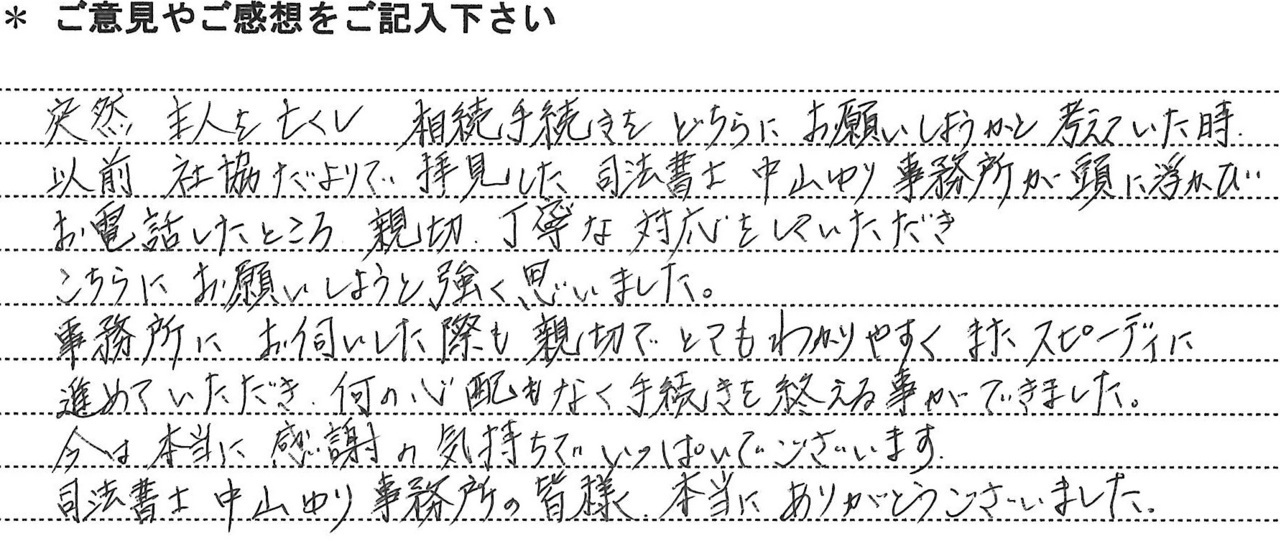 * ご意見やご感想をご記入下さい
突然 主人を亡くし 相続手続きを どちらに お願いしようかと 考えていた時、
以前 社協だよりで 拝見した 司法書士 中山ゆり 事務所が 頭に浮かび
お電話したところ 親切、丁寧な 対応をしていただき
こちらに お願いしようと 強く思いました。
事務所に お伺いした際も 親切で とてもわかりやすく また スピーディに
進めていただき、何の心配もなく 手続きを 終える事ができました。
今は 本当に 感謝の 気持ちで いっぱいでございます。
司法書士 中山ゆり 事務所の 皆様、本当に ありがとうございました。